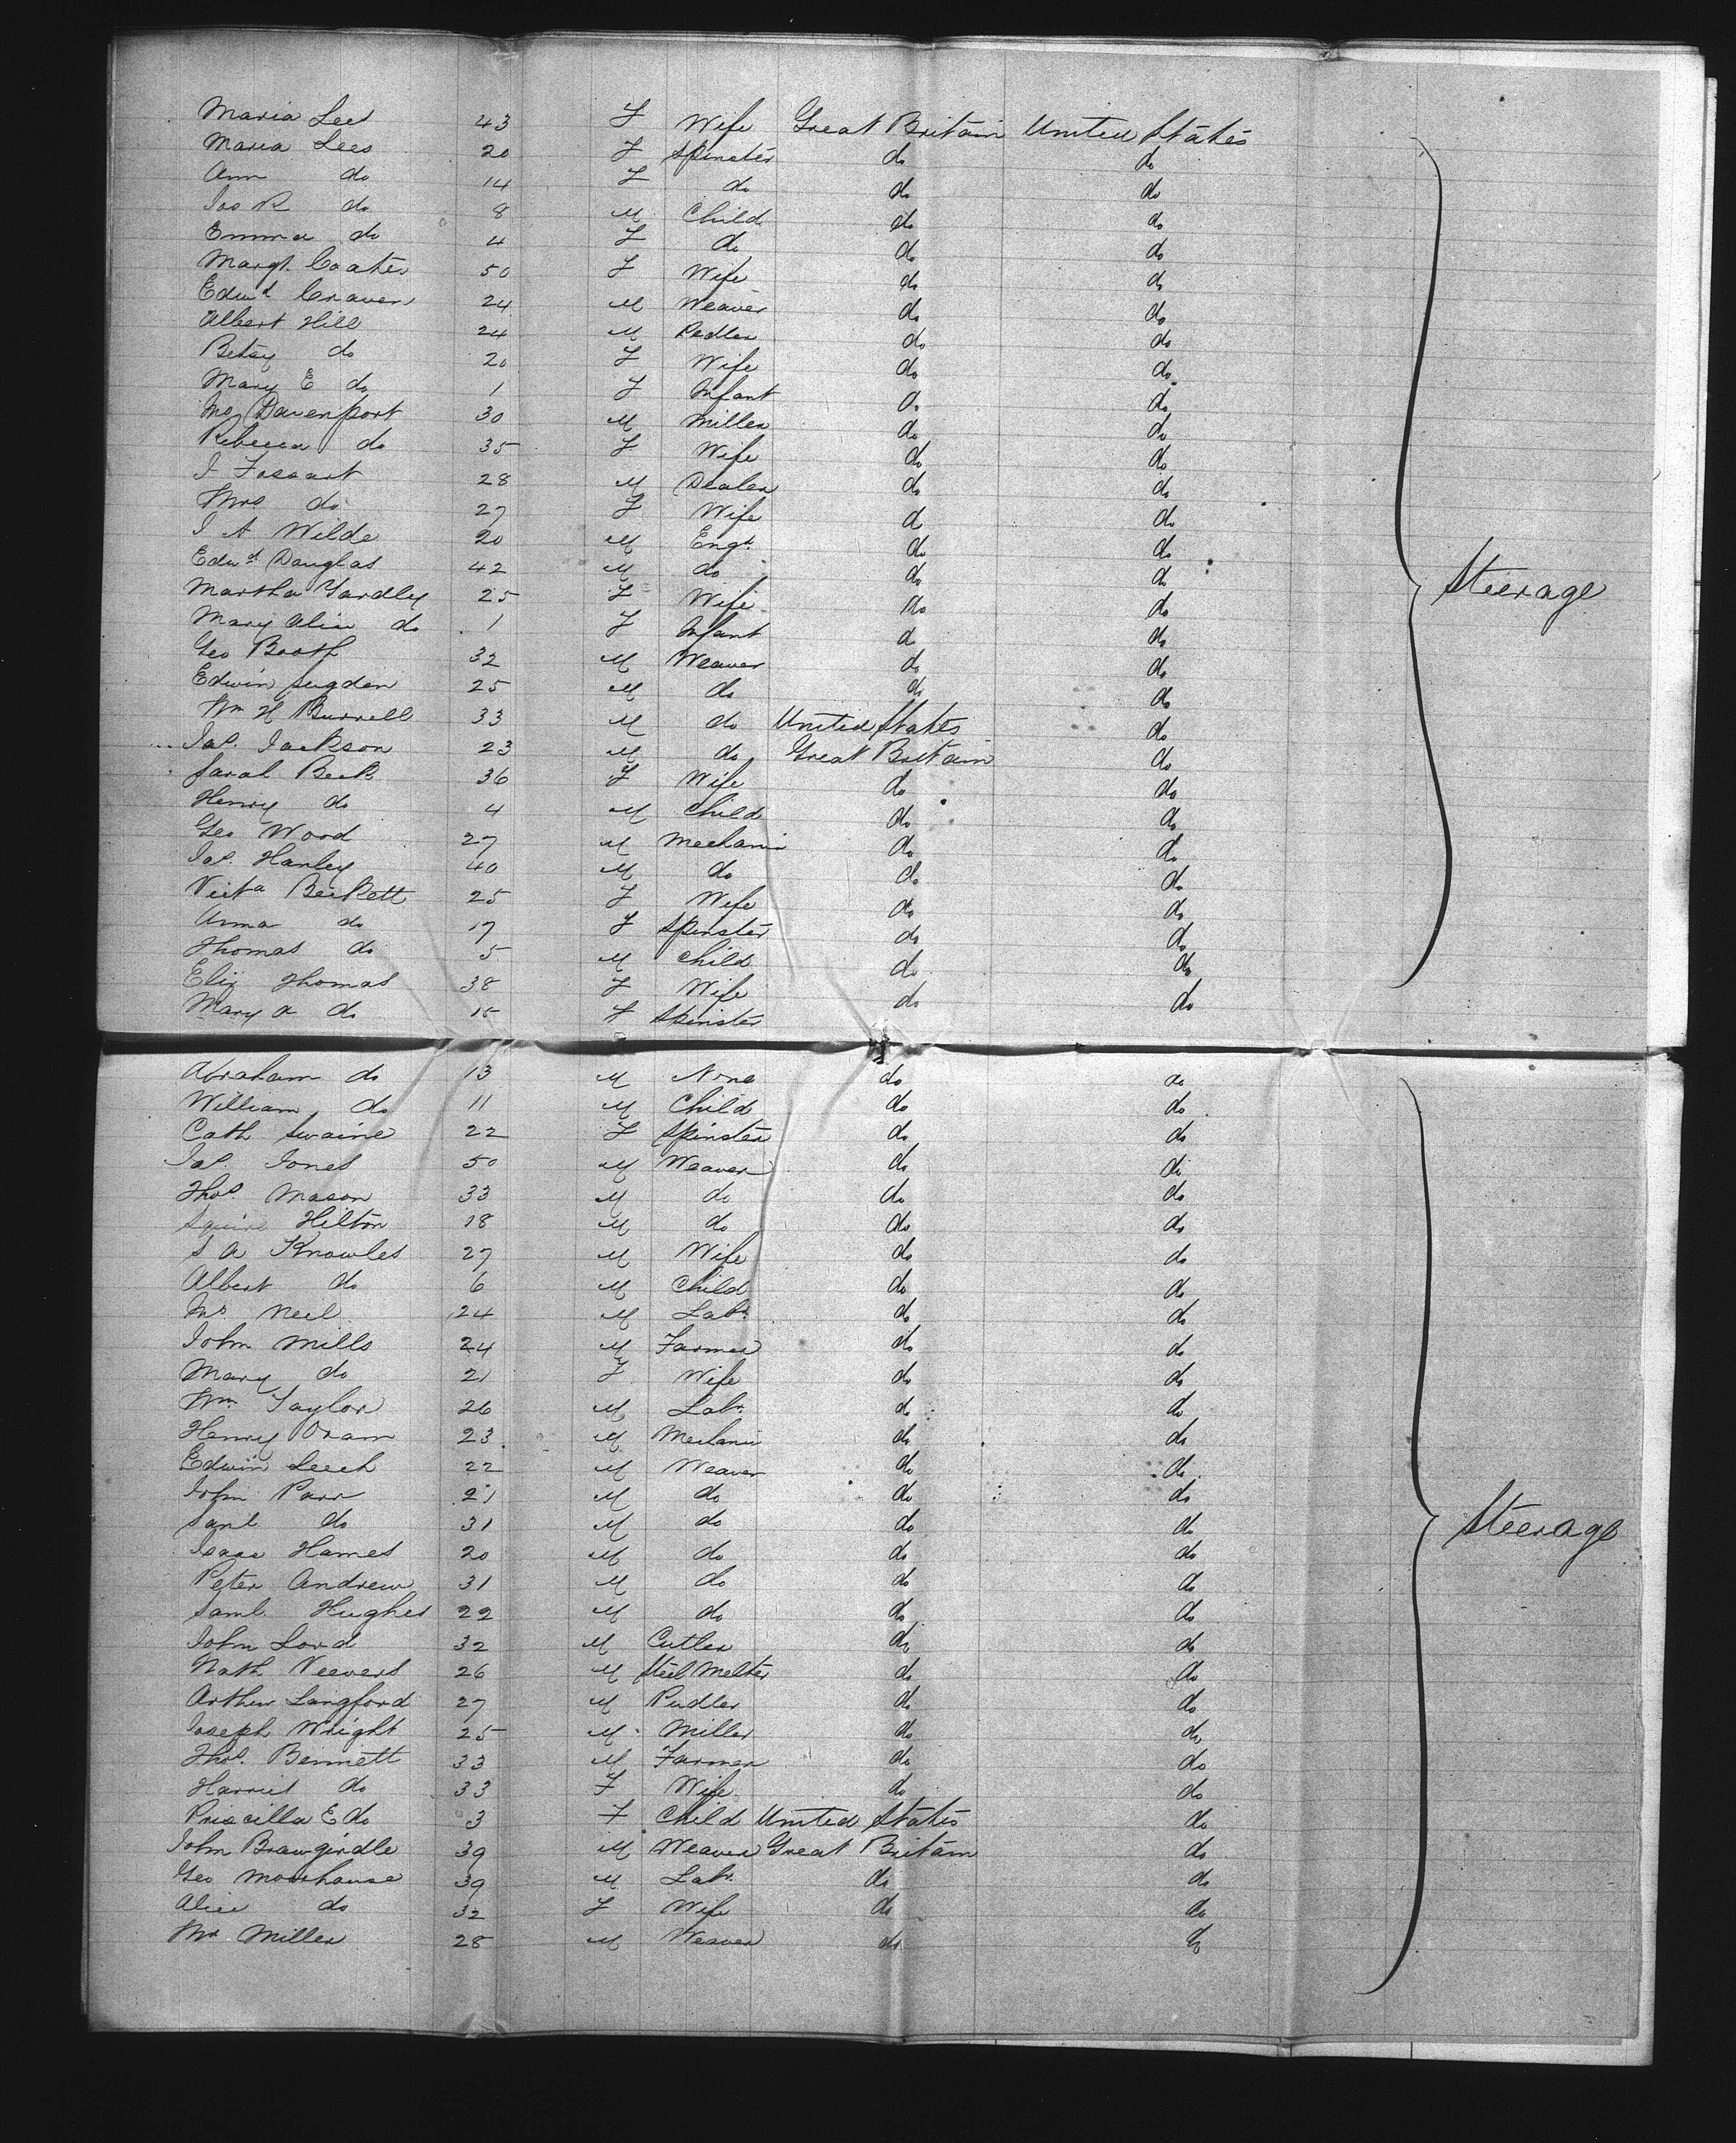 Maria Lees 43 F Wife Great Britain United States
Maria Lees 20 F Spinster do do
Ann do 14 F do do do
Jos R do 8 M Child do do
Emma do 4 F do do do
Margt. Coates 50 F Wife do do
Edwd Craven 24 M Weaver do do
Albert Hill 24 M Pedler do do
Betsy do 20 F Wife do do
Mary E do 1 F Infant do do
Jno Davenport 30 M Miller do do
Rebecca do 35 F Wife do do
J Fossart 28 M Dealer do do
Mrs do 27 F Wife do do
J A Wilde 20 M Engr. do do
Edwd Douglas 42 M do do do
Martha Yardley 25 F Wife do do
Mary Alice do 1 F Infant do do
Geo Booth 32 M Weaver do do
Edwin Sugden 25 M do do do
Wm H Burrell 33 M do United States do
Jas. Jackson 23 M do Great Britain do
Sarah Beck 36 F Wife do do
Henry do 4 M Child do do
Geo Wood 27 M Mechanic do do
Jas. Hanley 40 M do do do
Victa Beckett 25 F Wife do do
Anna do 17 F Spinster do do
Thomas do 5 M Child do do
Eliz Thomas 38 F Wife do do
Mary A do 15 F Spinster
Steerage
Abraham do 13 M None do do
William do 11 M Child do do
Cath Swaine 22 F Spinster do do
Jas. Jones 50 M Weaver do do
Thos Mason 33 M do do do
Squire Hilton 18 M do do do
S A Knowles 27 M Wife do do
Albert do 6 M Child do do
Mr Neil 24 M Labr. do do
John Mills 24 M Farmer do do
Mary do 21 F Wife do do
Wm. Taylor 26 M Labr. do do
Henry Oram 23 M Mechanic do do
Edwin Leech 22 M Weaver do do
John Parr 21 M do do do
Saml do 31 M do do do
Isaac Hames 20 M do do do
Peter Andrew 31 M do do do
Saml. Hughes 22 M do do do
John Lord 32 M Cutler do do
Nath Veevers 26 M Steel Melter do do
Arthur Langford 27 M Pudler do do
Joseph Wright 25 M Miller do do
Thos. Bennett 33 M Farmer do do
Harriet do 33 F Wife do do
Priscilla E do 3 F Child United States do
John Brawgirdle 39 M Weaver Great Britain do
Geo Moorhouse 39 M Labr. do do
Alice do 32 F Wife do do
Mr Miller 28 M Weaver do do
Steerage